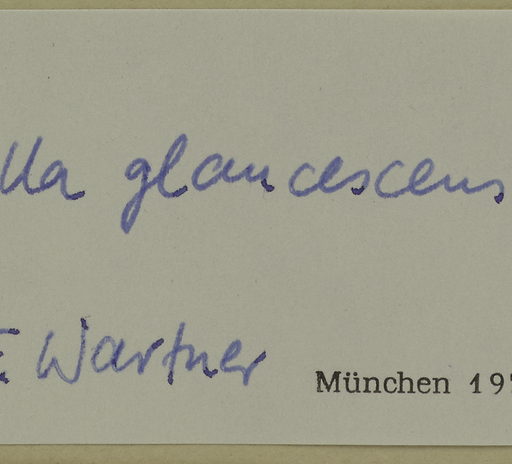 lla glaucescens
E. Wartner München 19